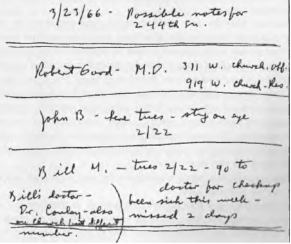 3/23/66 - Possible notes for
244th Gr.
Robert Good - M.D. 311 W. Church. Off.
919 W. Church - Res.
John B - here tues - sty on eye
2/22
Bill M. - tues 2/22 - go to
doctor for checkup
been sick this week -
missed 2 days
Bill's doctor -
Dr. Conley - also
on Church but different
number.